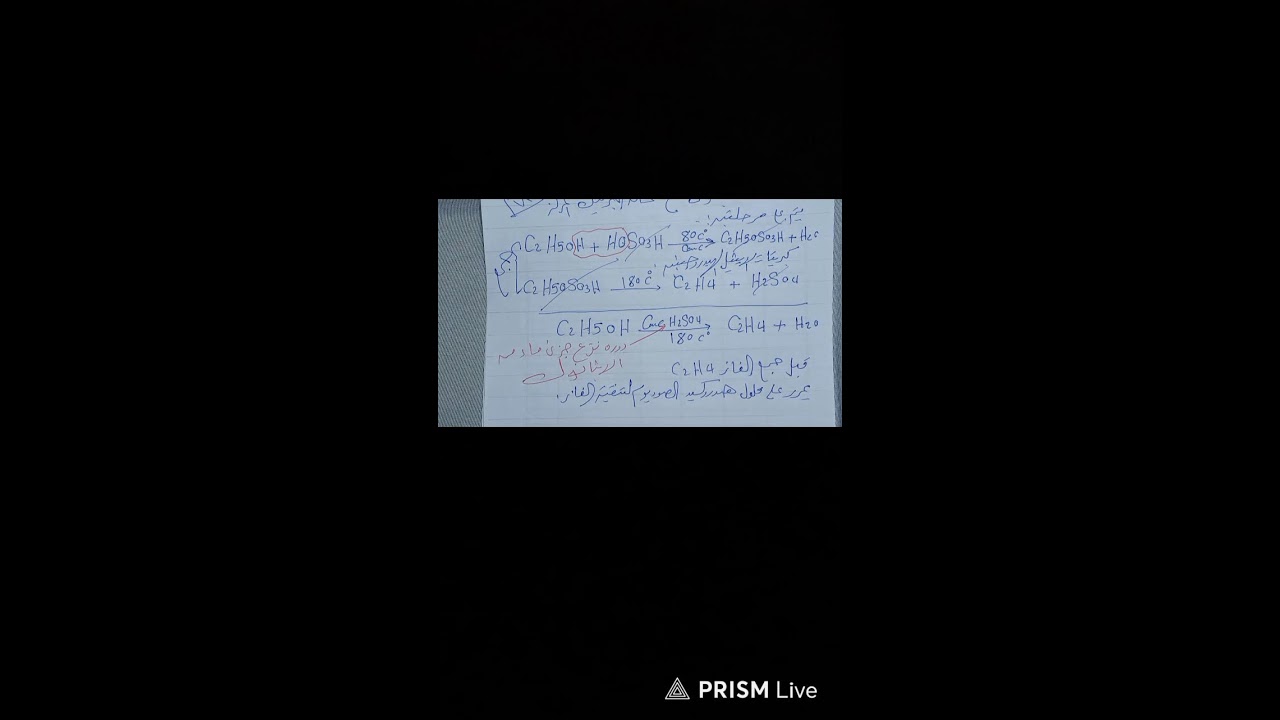 يتم على مرحلتين:
C2H5OH + HOSO3H 80c° Conc C2H5OSO3H + H2O
كبريتات الهيدروجينية
C2H5OSO3H 180c° C2H4 + H2SO4
C2H5OH Conc H2SO4 180c° C2H4 + H2O
دوره نزع جزئ ماء من
الايثانول
قبل جمع الغاز C2H4
يمرر على محلول هيدروكسيد الصوديوم لتنقية الغاز.
PRISM Live